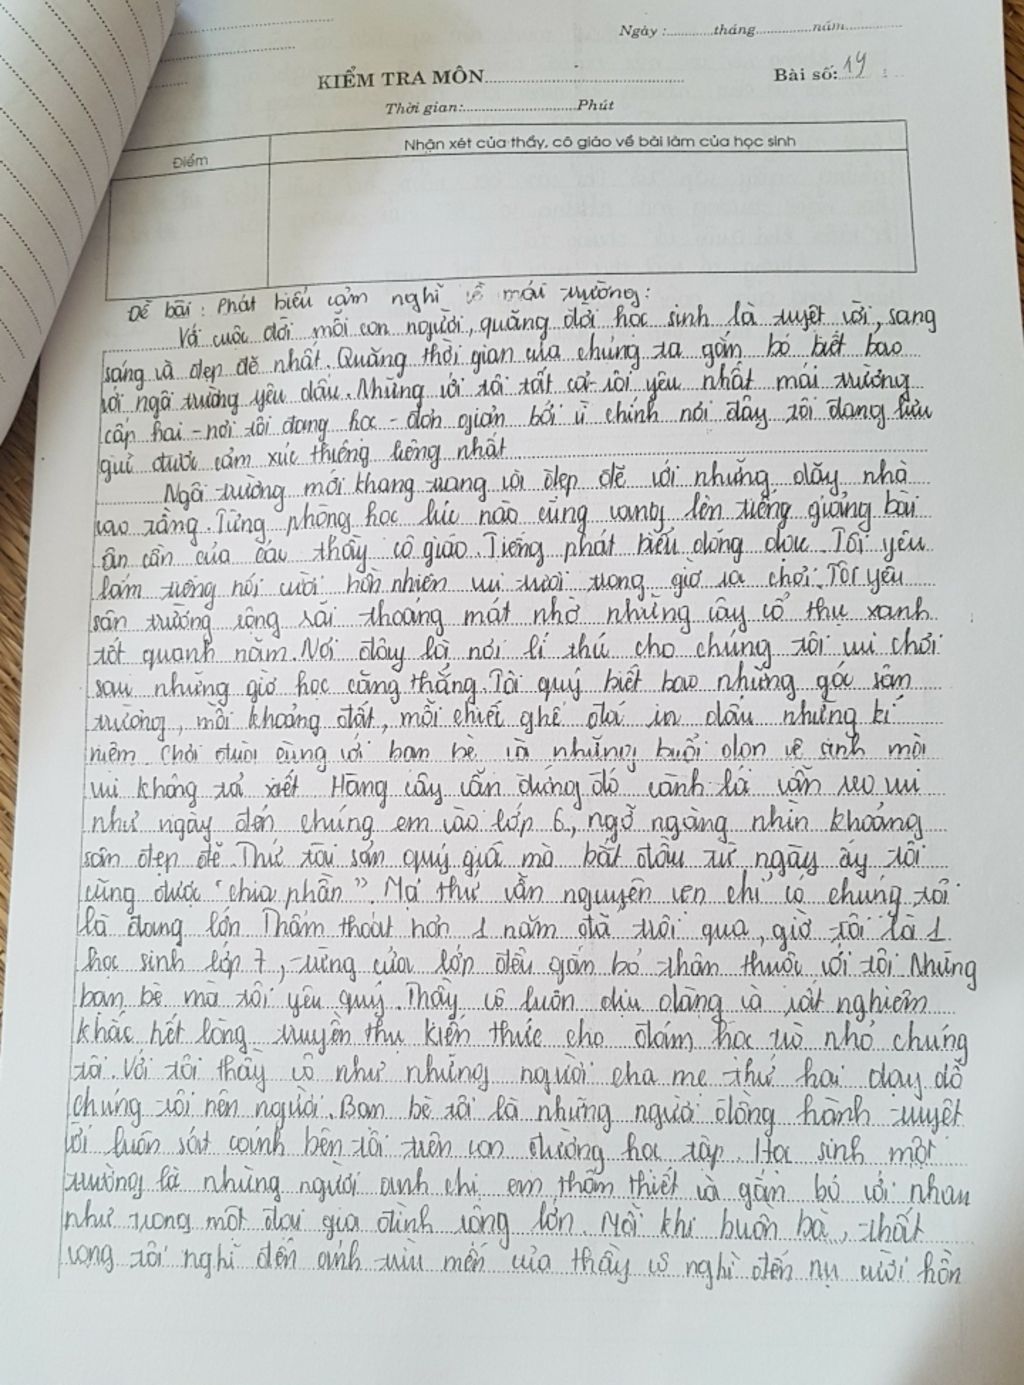 Ngày :............tháng..............năm..............
KIỂM TRA MÔN
Bài số: 14
Thời gian:..........................Phút
Điểm
Nhận xét của thầy, cô giáo về bài làm của học sinh
Đề bài : Phát biểu cảm nghĩ về mái trường :
Với cuộc đời mỗi con người, quãng đời học sinh là tuyệt vời, sang
sáng và đẹp đẽ nhất. Quãng thời gian của chúng ta gắn bó biết bao
với ngôi trường yêu dấu. Nhưng với tôi tất cả - tôi yêu nhất mái trường
cấp hai - nơi tôi đang học - đơn giản bởi vì chính nơi đây tôi đang lưu
giữ được cảm xúc thiêng liêng nhất
Ngôi trường mới khang trang với đẹp đẽ với những dãy nhà
cao tầng. Từng phòng học lúc nào cũng vang lên tiếng giảng bài
ân cần của các thầy cô giáo. Tiếng phát biểu dõng dạc. Tôi yêu
lắm tiếng nói cười hồn nhiên vui tươi trong giờ ra chơi. Tôi yêu
sân trường rộng rãi thoáng mát nhờ những cây cổ thụ xanh
tốt quanh năm. Nơi đây là nơi lí thú cho chúng tôi vui chơi
sau những giờ học căng thẳng. Tôi quý biết bao những góc sân
trường, mỗi khoảng đất, mỗi chiếc ghế đá in dấu những kỉ
niệm chơi đuổi cùng với bạn bè và những buổi dọn vệ sinh mà
vui không tả xiết Hàng cây vẫn đứng đó cành lá vẫn reo vui
như ngày đến chúng em vào lớp 6, ngỡ ngàng nhìn khoảng
sân đẹp đẽ. Thứ tài sản quý giá mà bắt đầu từ ngày ấy tôi
cũng được "chia phần". Mọi thứ vẫn nguyên vẹn chỉ có chúng tôi
là đang lớn Thấm thoát hơn 1 năm đã trôi qua, giờ tôi là 1
học sinh lớp 7, từng cửa lớp đều gắn bó thân thuộc với tôi. Những
bạn bè mà tôi yêu quý. Thầy cô luôn dịu dàng và rất nghiêm
khắc hết lòng truyền thụ kiến thức cho đám học trò nhỏ chúng
tôi. Với tôi thầy cô như những người cha mẹ thứ hai dạy dỗ
chúng tôi nên người. Bạn bè tôi là những người đồng hành tuyệt
vời luôn sát cánh bên tôi trên con đường học tập. Học sinh một
trường là những người anh chị em thắm thiết và gắn bó với nhau
như trong một đại gia đình rộng lớn. Mỗi khi buồn bã, thất
vọng tôi nghĩ đến ánh trìu mến của thầy cô nghĩ đến nụ cười hồn